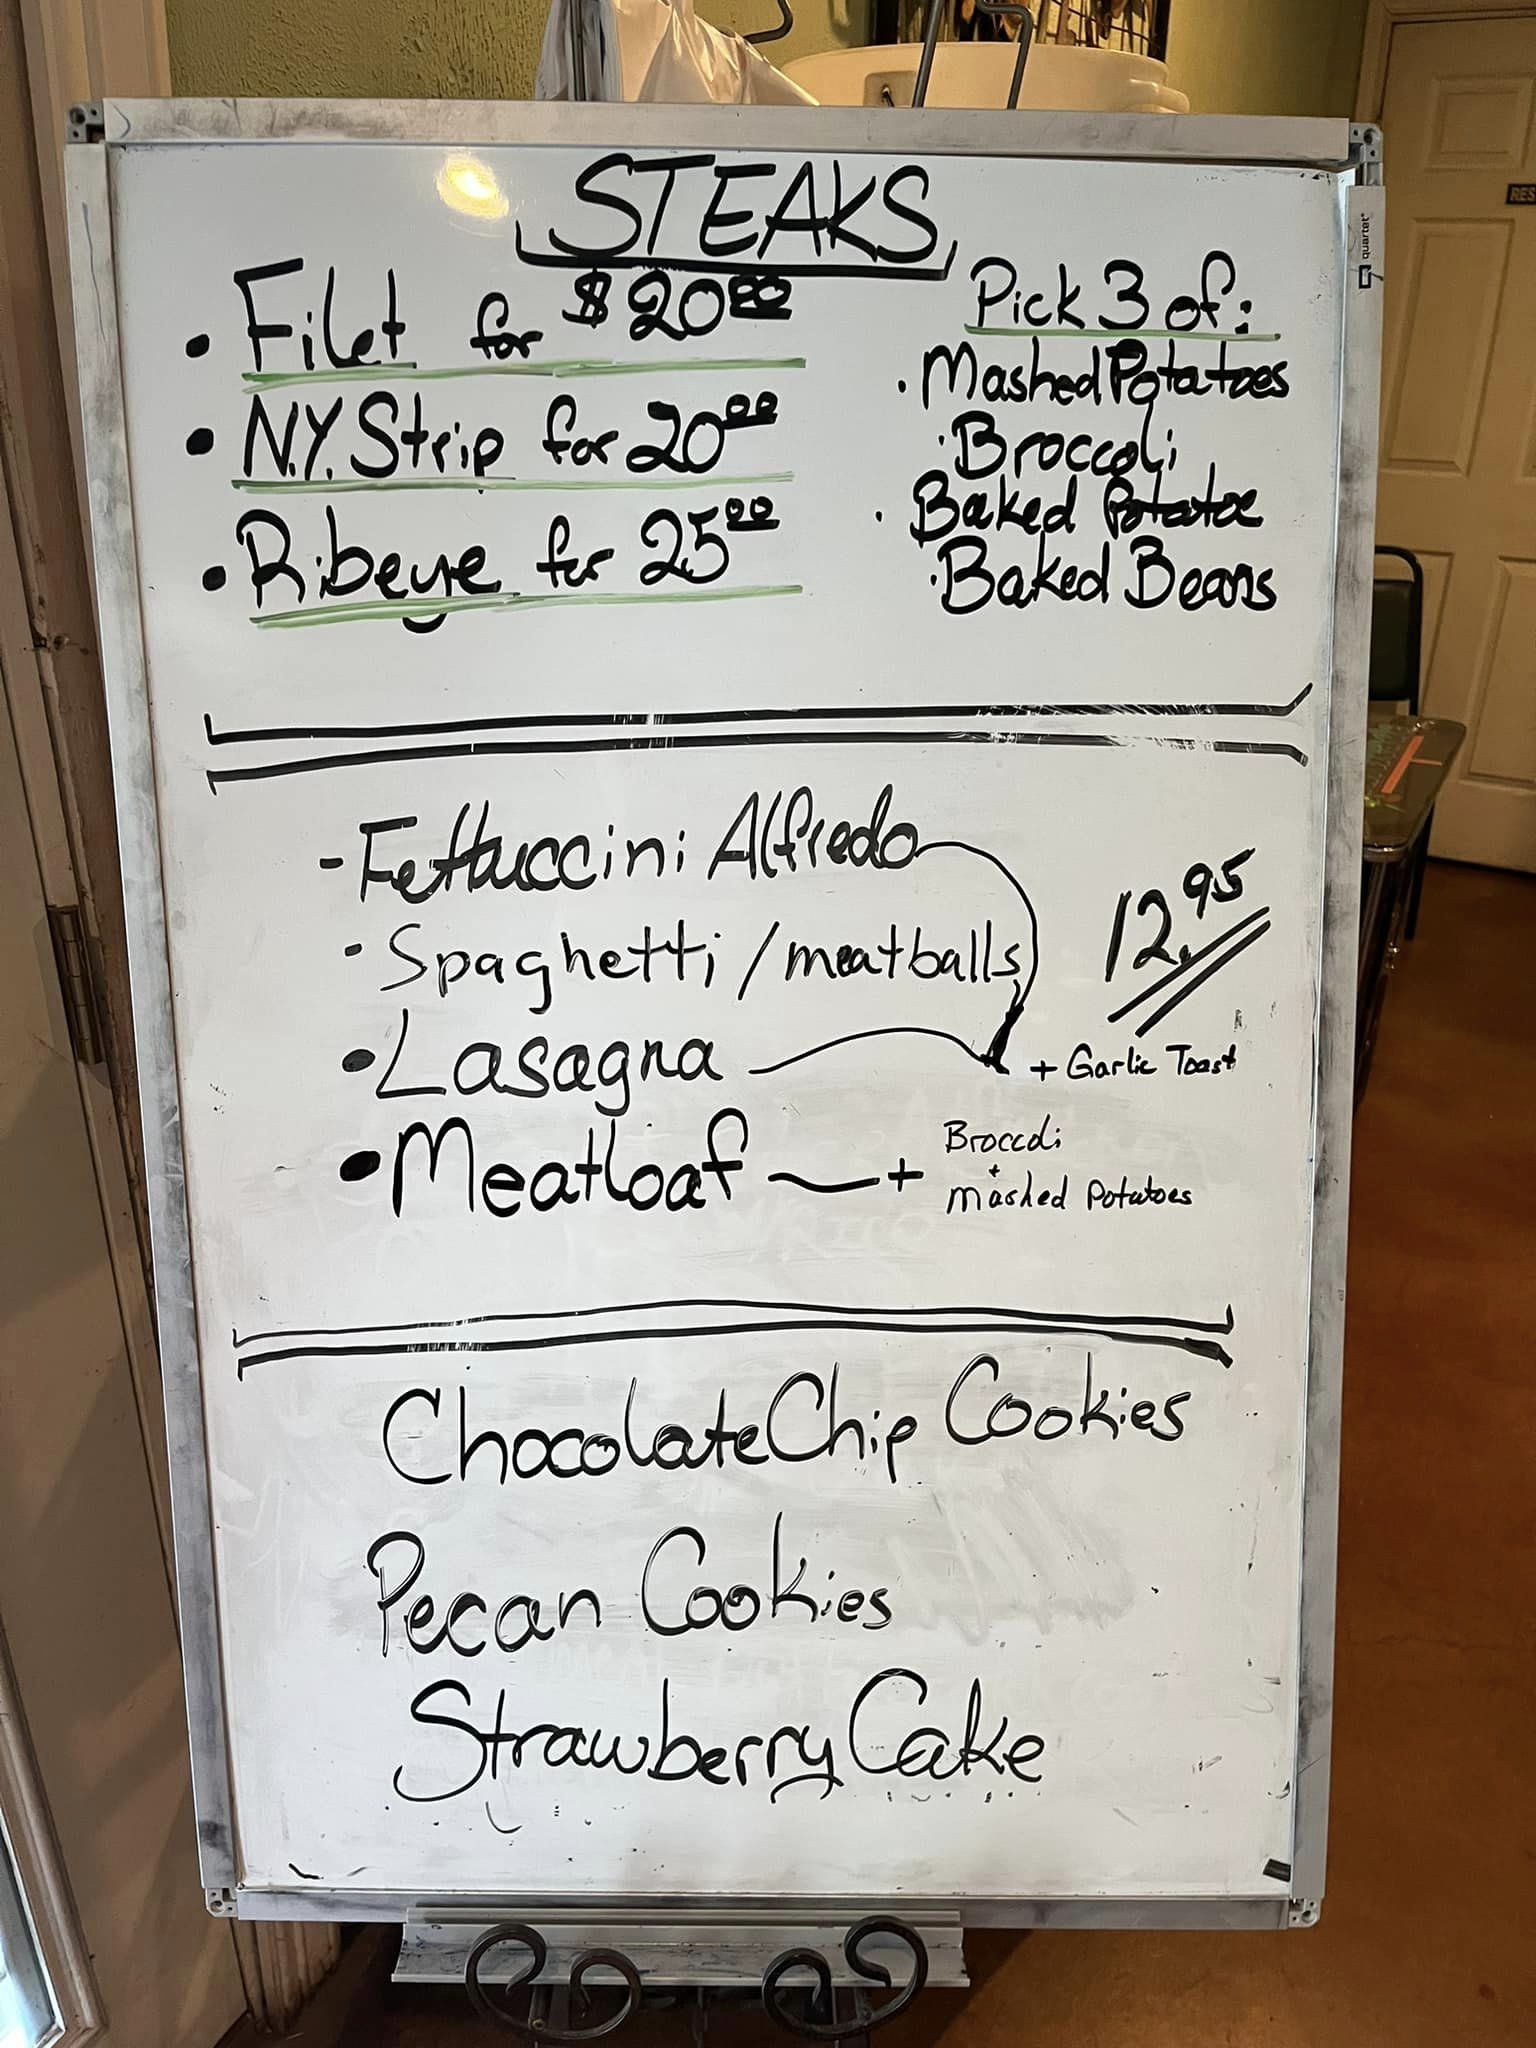 STEAKS
• Filet for $20.00
• N.Y. Strip for 20.00
• Ribeye for 25.00
Pick 3 of:
• Mashed Potatoes
• Broccoli
• Baked Potatoe
• Baked Beans
- Fettuccini Alfredo
• Spaghetti / meatballs
12.95
• Lasagna
+ Garlic Toast
• Meatloaf +
Broccoli
+
Mashed Potatoes
Chocolate Chip Cookies
Pecan Cookies
Strawberry Cake
quartet
RES